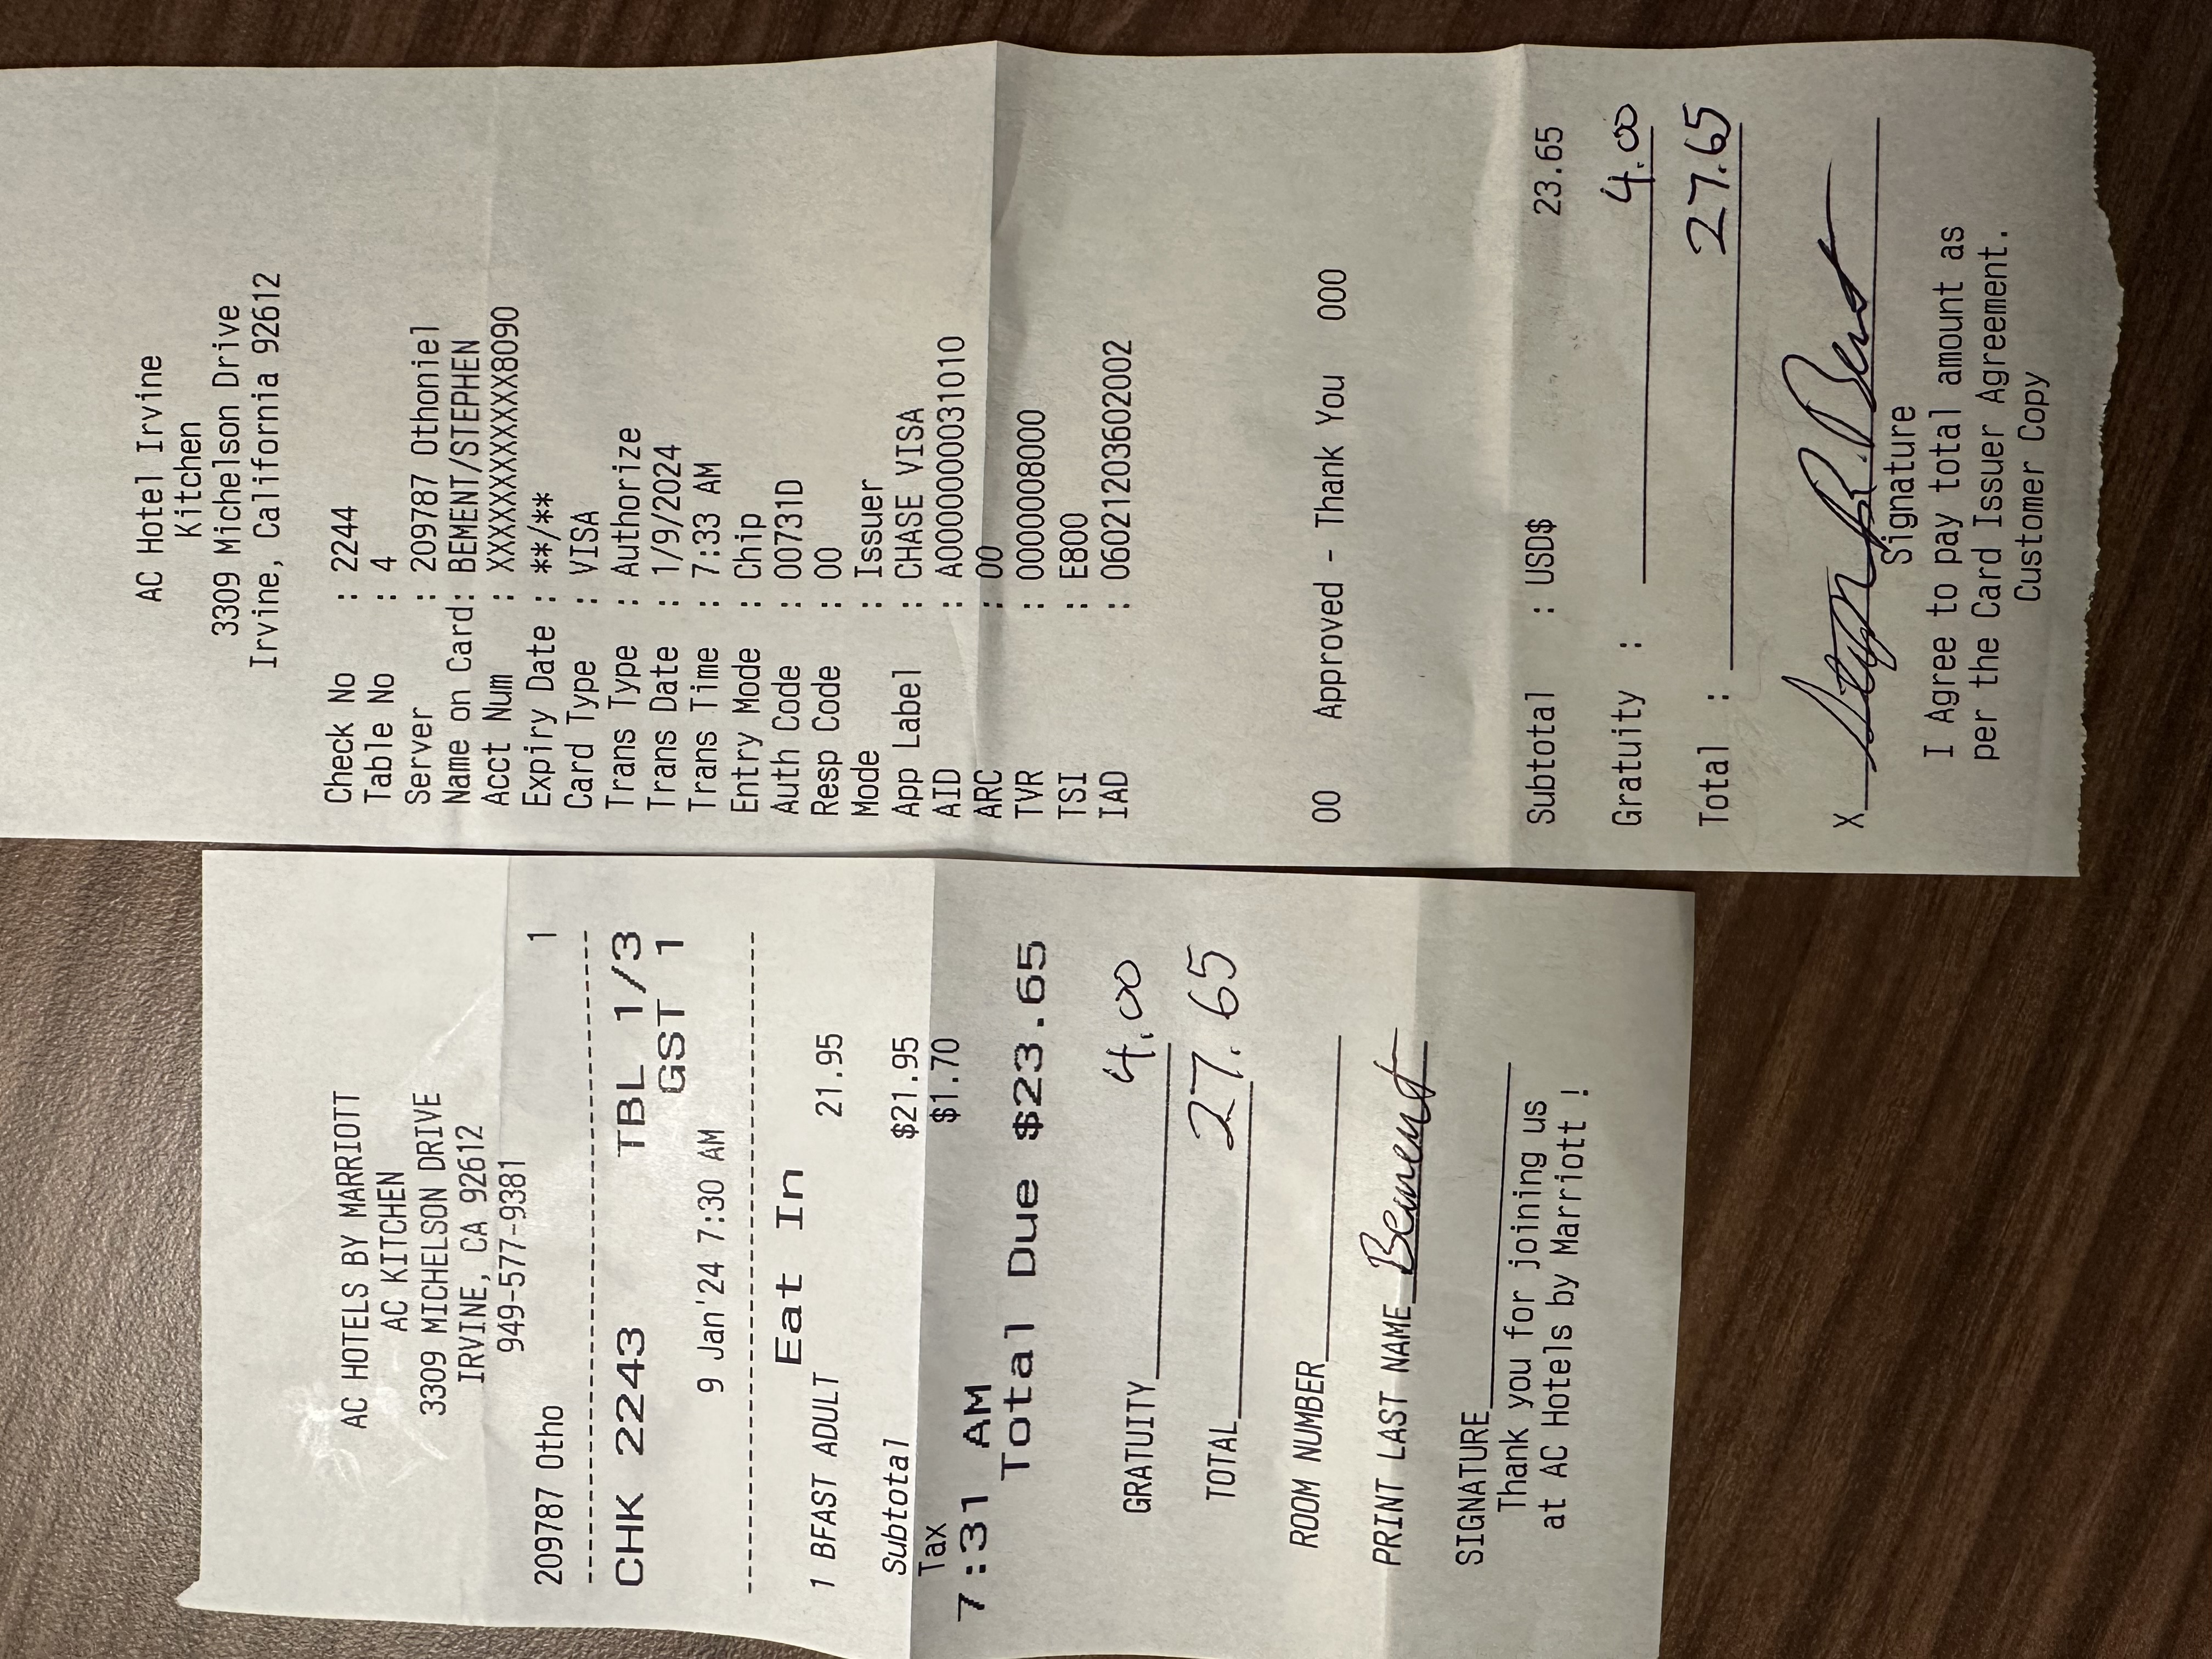 AC HOTELS BY MARRIOTT
AC KITCHEN
3309 MICHELSON DRIVE
IRVINE, CA 92612
949-577-9381
209787 Otho 1
CHK 2243 TBL 1/3
GST 1
9 Jan'24 7:30 AM
Eat In
1 BFAST ADULT 21.95
Subtotal $21.95
Tax $1.70
7:31 AM
Total Due $23.65
GRATUITY 4.00
TOTAL 27.65
ROOM NUMBER
PRINT LAST NAME Bement
SIGNATURE
Thank you for joining us
at AC Hotels by Marriott !
AC Hotel Irvine
Kitchen
3309 Michelson Drive
Irvine, California 92612
Check No : 2244
Table No : 4
Server : 209787 Othoniel
Name on Card: BEMENT/STEPHEN
Acct Num : XXXXXXXXXXXX8090
Expiry Date : **/**
Card Type : VISA
Trans Type : Authorize
Trans Date : 1/9/2024
Trans Time : 7:33 AM
Entry Mode : Chip
Auth Code : 00731D
Resp Code : 00
Mode : Issuer
App Label : CHASE VISA
AID : A0000000031010
ARC : 00
TVR : 0000008000
TSI : E800
IAD : 06021203602002
00 Approved - Thank You 000
Subtotal : USD$ 23.65
Gratuity : 4.00
Total : 27.65
X
Signature
I Agree to pay total amount as
per the Card Issuer Agreement.
Customer Copy